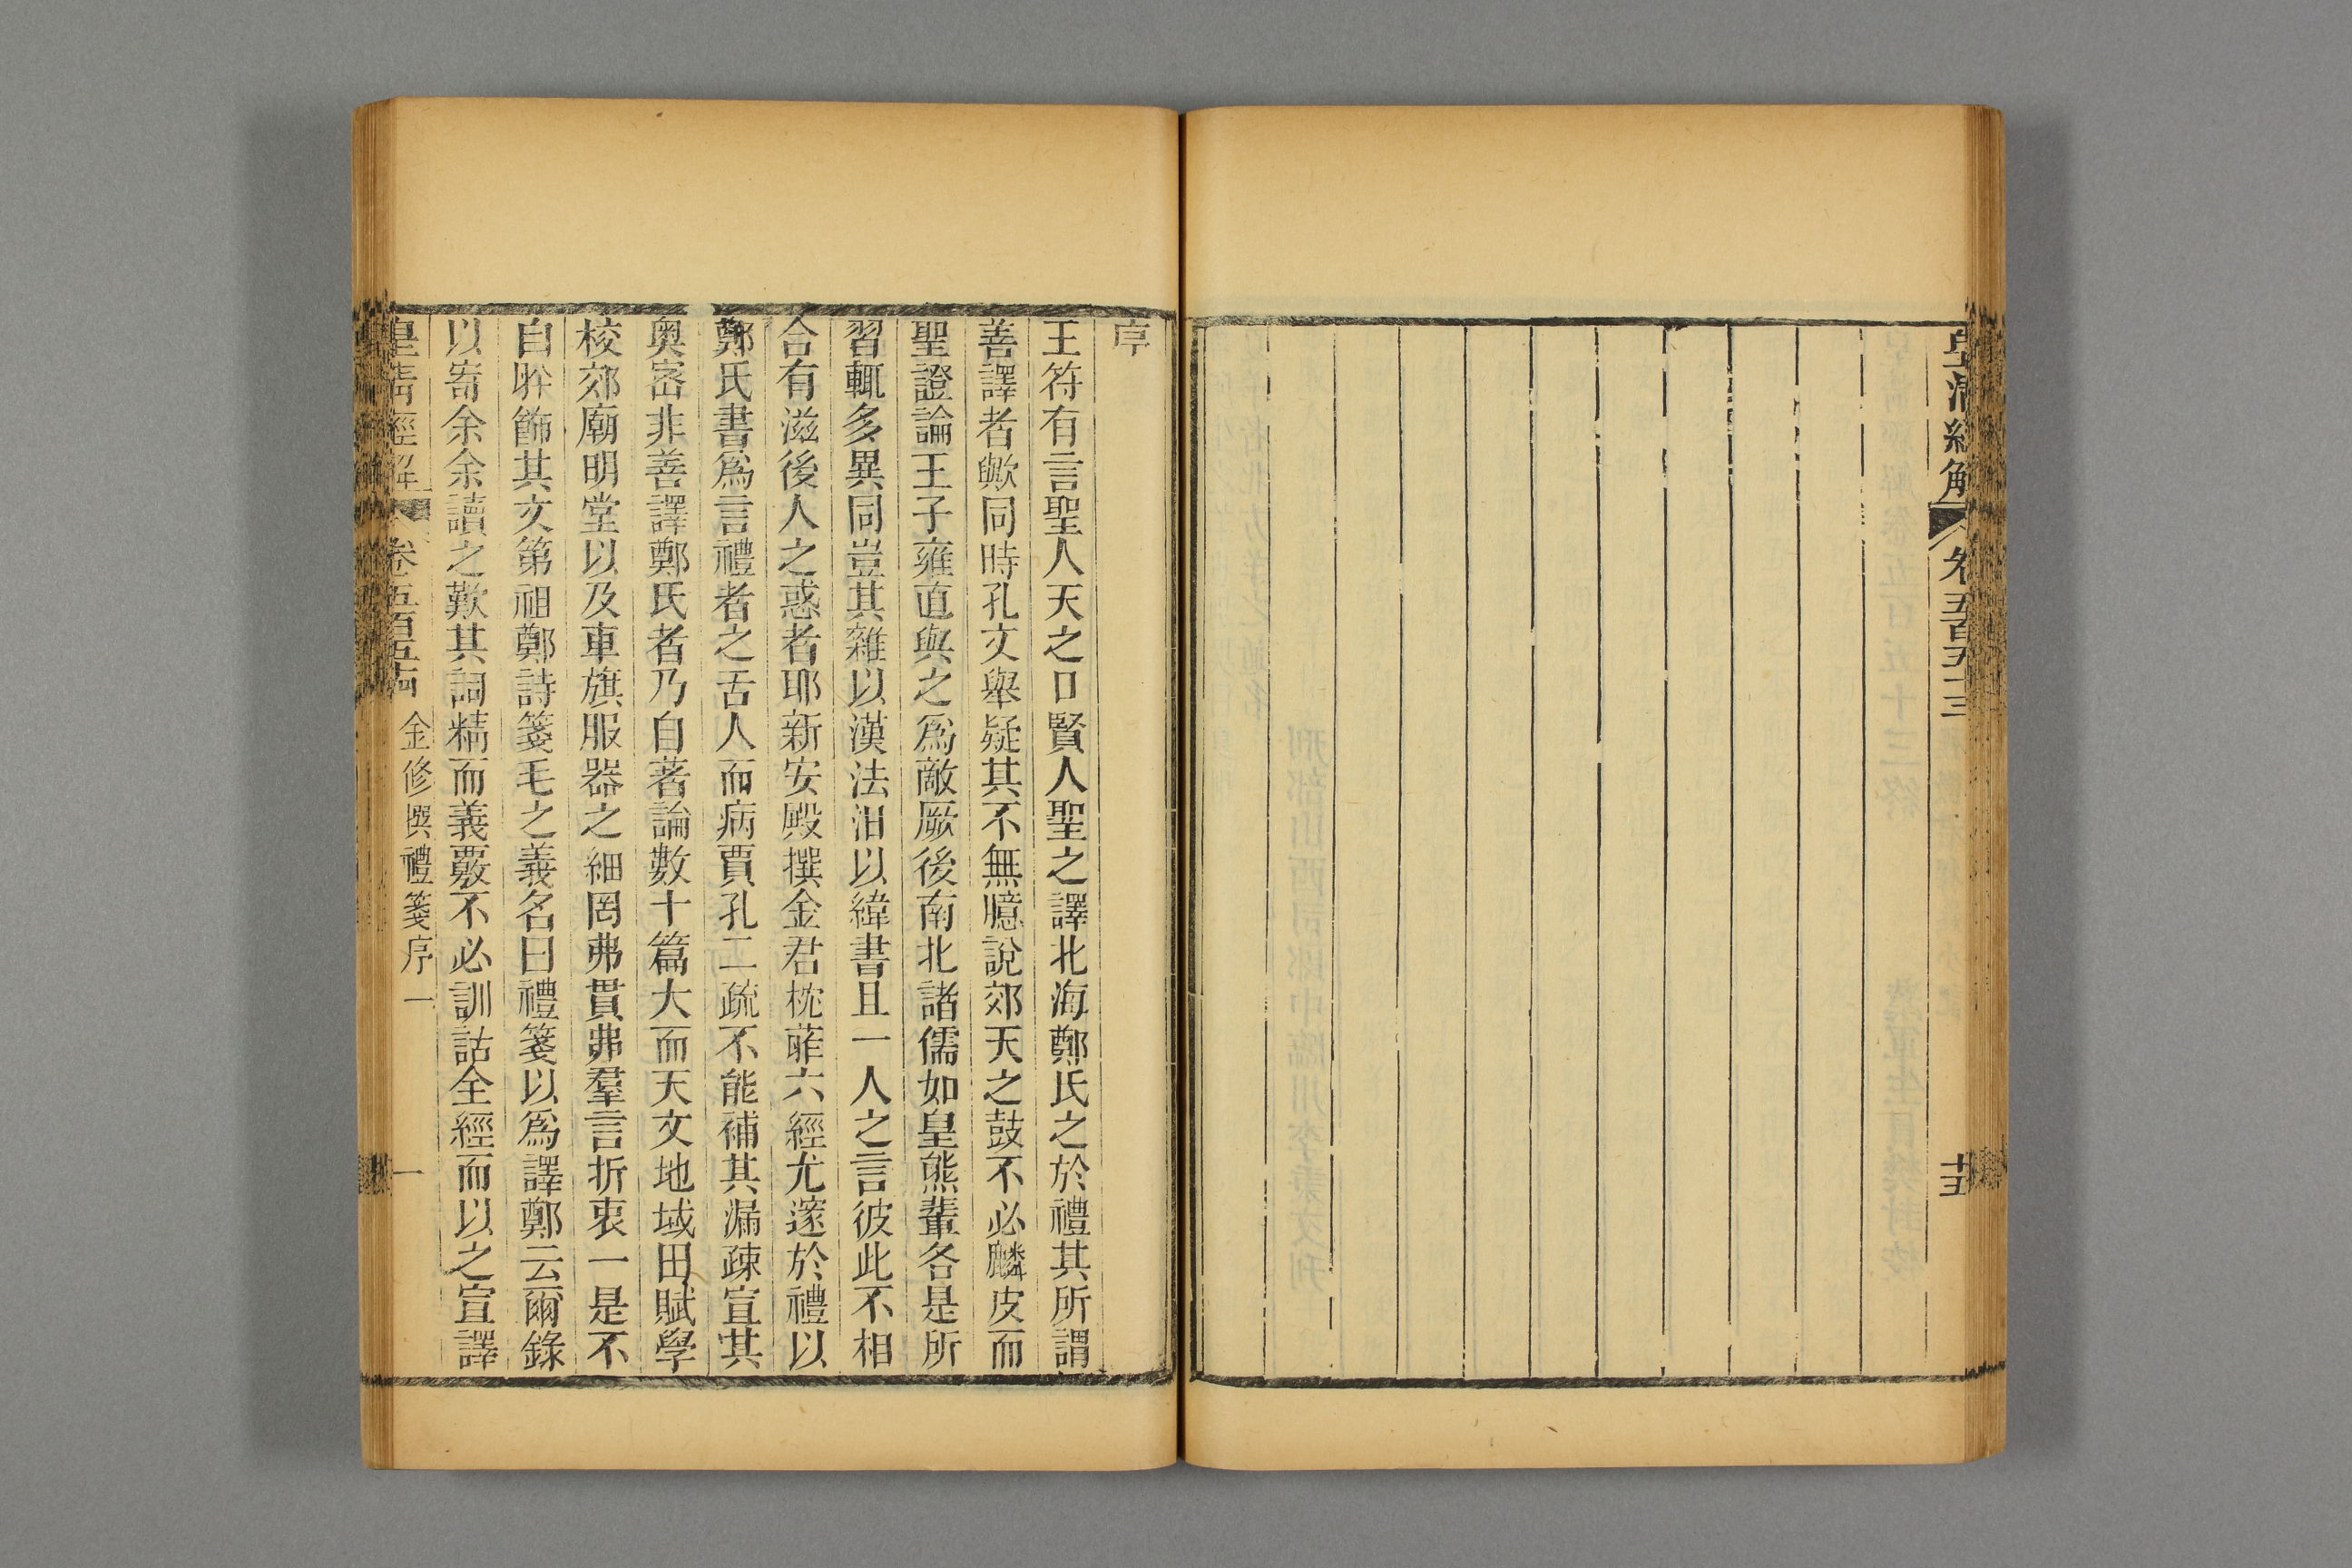 皇清經解
卷五百五十三
十五
序
王符有言聖人天之口賢人聖之譯北海鄭氏之於禮其所謂
善譯者歟同時孔文舉疑其不無臆說郊天之鼓不必麟皮而
聖證論王子雍直與之爲敵厥後南北諸儒如皇熊輩各是所
習輒多異同豈其雜以漢法汨以緯書且一人之言彼此不相
合有滋後人之惑者耶新安殿撰金君枕葄六經尤邃於禮以
鄭氏書爲言禮者之舌人而病賈孔二疏不能補其漏疎宣其
奥宻非善譯鄭氏者乃自著論數十篇大而天文地域田賦學
校郊廟明堂以及車旗服器之細罔弗貫弗羣言折衷一是不
自眣飾其文第祖鄭詩箋毛之義名曰禮箋以爲譯鄭云爾錄
以寄余余讀之歎其詞精而義覈不必訓詁全經而以之宣譯
皇清經解 卷五百五十四 金修撰禮箋序一 一